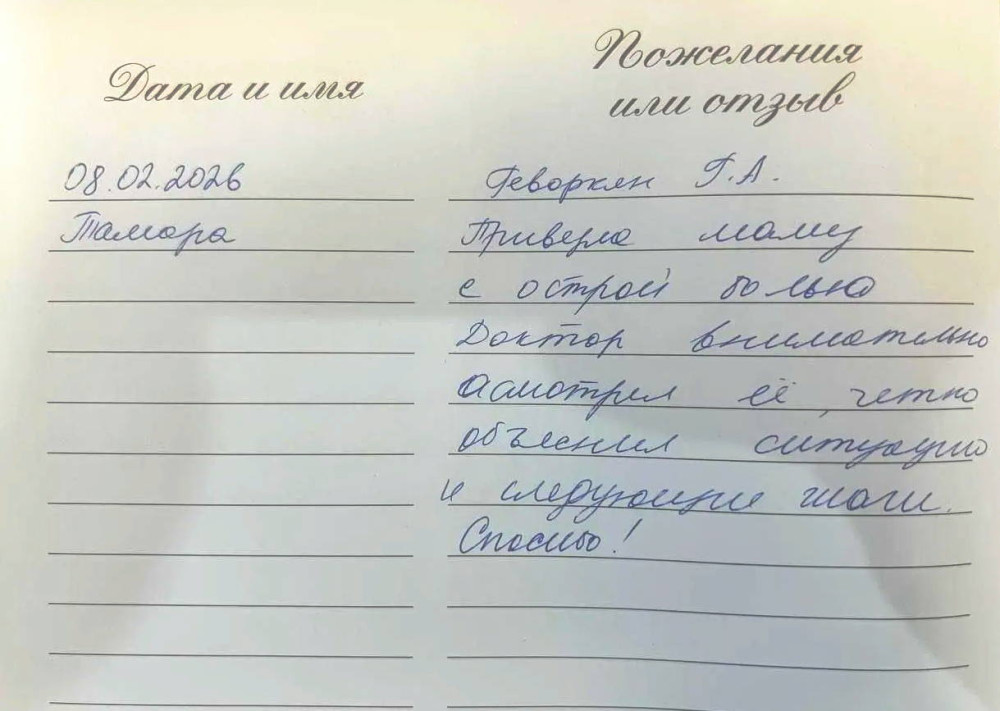 Дата и имя
Пожелания
или отзыв
08.02.2026
Тамара
Геворкян Г.А.
Привела маму
с острой болью
Доктор внимательно
асмотрел её, четко
объяснил ситуацию
и следующие шаги.
Спасибо!